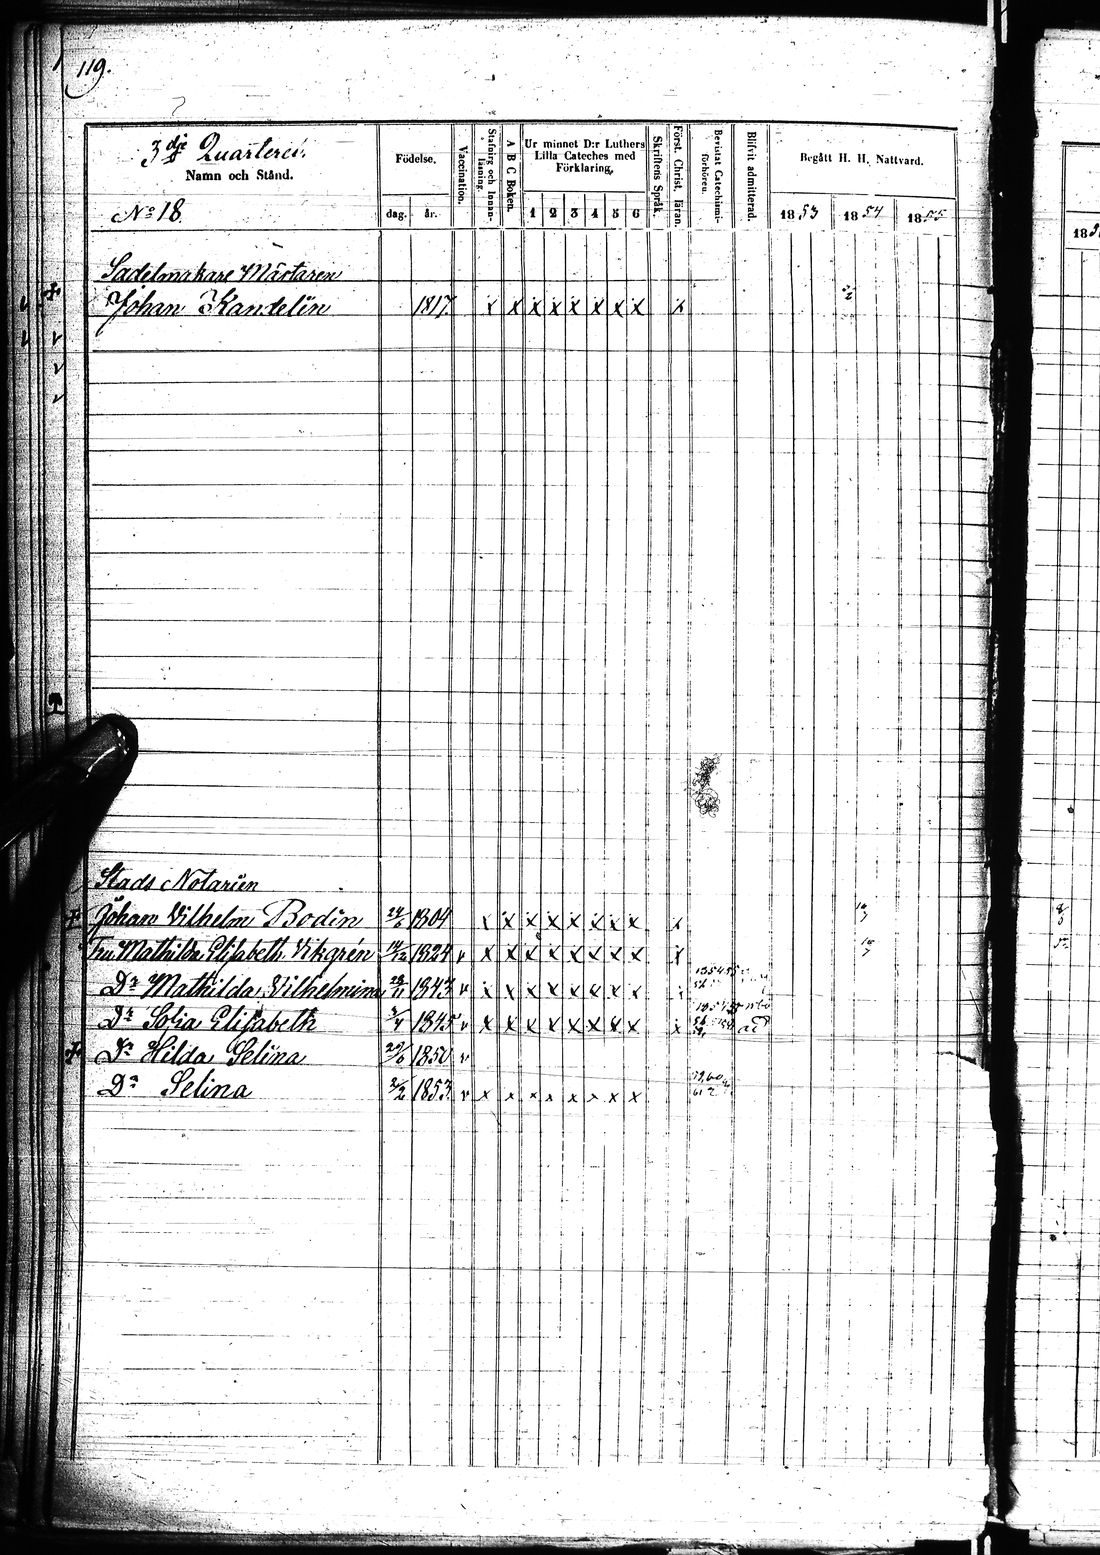 119.
3dje Quarteret.
Namn och Stånd.
No 18
Födelse.
dag. år.
Vaccination.
Stafning och Innanläsning.
A B C Boken.
Ur minnet D:r Luthers
Lilla Cateches med
Förklaring,
1 2 3 4 5 6
Skriftens Språk.
Först. Christ. läran.
Bevistat Catechismiförhören.
Blifvit admitterad.
Begått H. H. Nattvard.
1853 1854 1855
Sadelmakare Mästaren
Johan Kandelin 1817. x x x x x x x x x
Stads Notarien
Johan Vilhelm Bodin 24/6 1804 x x x x x x x x x
Fru Mathilda Elisabeth Vikgrén 14/12 1824 v x x x x x x x x x
Dr Mathilda Vilhelmina 28/11 1843 v x x x x x x x x
Dr Sofia Elisabeth 1845 v x x x x x x x x x
Dr Hilda Selina 1850 v
Dr Selina 2/2 1853. v x x x x x x x x